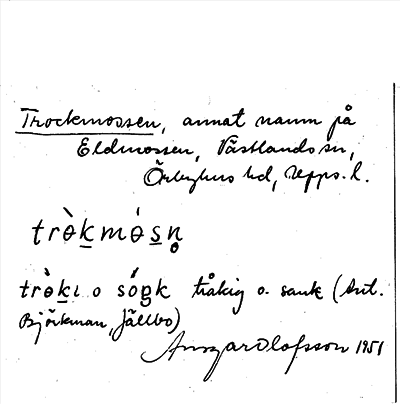 Trockmossen, annat namn på
Eldmossen, Västlands sn,
Örbyhus hd, Upps. l.
trɵ̀k̲mɵ́s̲n̥
trɵ̀k̲ı o sɵ́ŋk tråkig o. sank (Ant.
Björkman, Jällbo)
Ansgar Olofsson 1951